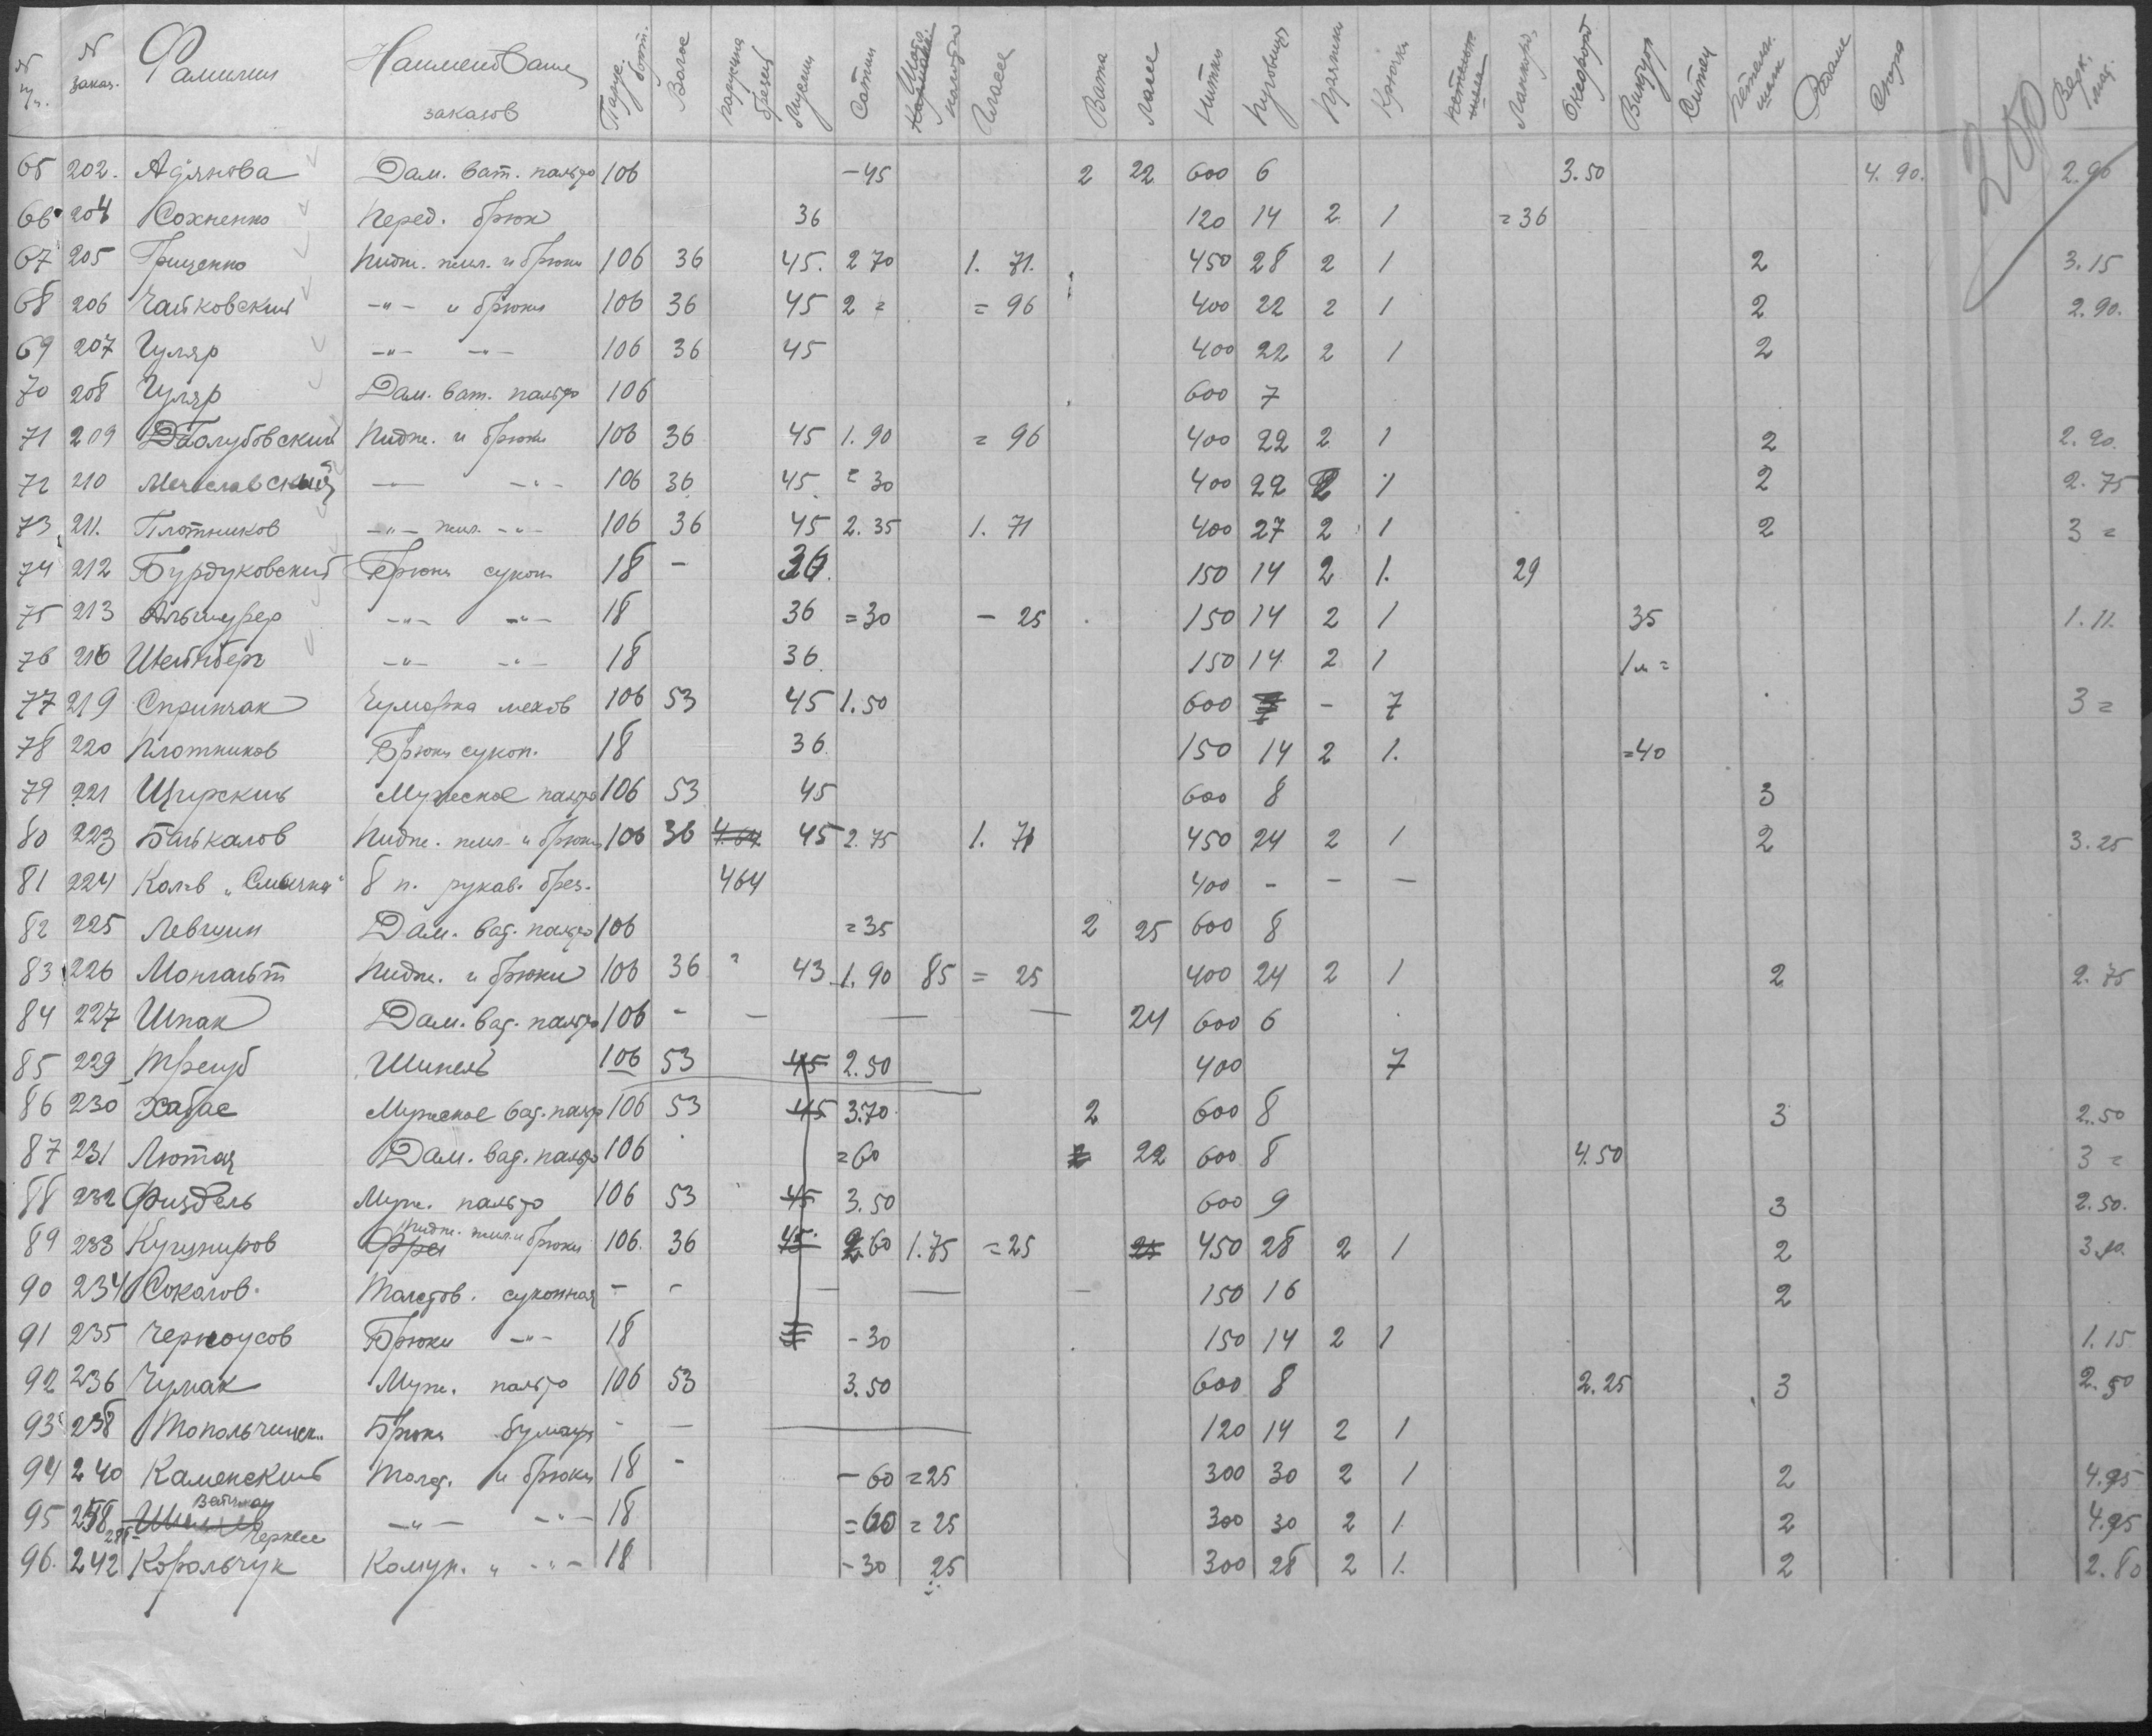 N п/п. N заказ. Фамилия Наименование заказов Волос парусина брезент Муслин Сатин Вата Ласс Нитки Пуговицы Пряжки Крючки Ситец Верх. мат.
65 202. Адянова Дам. ват. пальто 106 -45 2 22 600 6 3.50 4.90. 2.90
66 204 Сохненко Перед. брюк 36 120 14 2 1 =36
67 205 Грищенко Пидж. жил. и брюки 106 36 45. 2 70 1. 71. 450 28 2 1 2 3.15
68 206 Чайковский -"- и брюки 106 36 45 2 = = 96 400 22 2 1 2 2.90.
69 207 Гуляр -"- -"- 106 36 45 400 22 2 1 2
70 208 Гуляр Дам. ват. пальто 106 600 7
71 209 Голубовский Пидж. и брюки 106 36 45 1.90 = 96 400 22 2 1 2 2.90.
72 210 Мечеславский -"- -"- 106 36 45. = 30 400 22 2 1 2 2.75
73 211. Плотников -"- жил. -"- 106 36 45 2.35 1. 71 400 27 2 1 2 3 =
74 212 Бурдуковский Брюки сукон 18 - 36. 150 14 2 1. 29
75 213 Альтшулер -"- -"- 18 36 =30 - 25 150 14 2 1 35 1.11.
76 216 Штейнберг -"- -"- 18 36. 150 14 2 1 1м =
77 219 Спринчак Чумарка мехов 106 53 45 1.50 600 7 - 7 3 =
78 220 Плотников Брюки сукон. 18 36. 150 14 2 1. =40
79 221 Щирский Мужеское пальто 106 53 45 600 8 3
80 223 Байкалов Пидж. жил. и брюки 106 36 4.64 45 2.75 1. 71 450 24 2 1 2 3.25
81 224 Кол-в „Смычка" 8 п. рукав. брез. 464 400 - - -
82 225 Левшин Дам. ват. пальто 106 =35 2 25 600 8
83 226 Монгайт Пидж. и брюки 106 36 43 1.90 85 = 25 400 24 2 1 2 2.75
84 227 Шпак Дам. ват. пальто 106 - - - - 24 600 6
85 229 Трегуб Шинель 106 53 45 2.50 400 7
86 230 Хабас Мужеское ват. пальто 106 53 45 3.70. 2 600 8 3 2.50
87 231 Лютая Дам. ват. пальто 106 =60 2 22 600 8 4.50 3 =
88 232 Физдель Муж. пальто 106 53 45 3.50 600 9 3 2.50.
89 233 Кугушров Пидж. жил. и брюки 106. 36 45. 2.60 1.75 =25 25 450 28 2 1 2 3.10.
90 234 Соколов. Толстов. суконная - - - - - 150 16 2
91 235 Черноусов Брюки -"- 18 -30 150 14 2 1 1.15
92 236 Чумак Муж. пальто 106 53 3.50 600 8 2.25 3 2.50
93 238 Топольчинск. Брюки бумаж - - 120 14 2 1
94 240 Каменский Толст. и брюки 18 - -60 =25 300 30 2 1 2 4.95
95 258 -"- -"- 18 =60 =25 300 30 2 1 2 4.95
96. 242 Корольчук Комур. " -"- 18 -30 25 300 28 2 1. 2 2.80